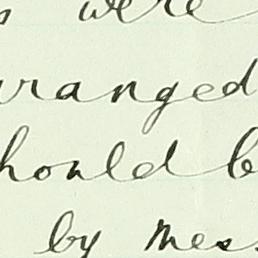 were
ranged
hould b
by Mes